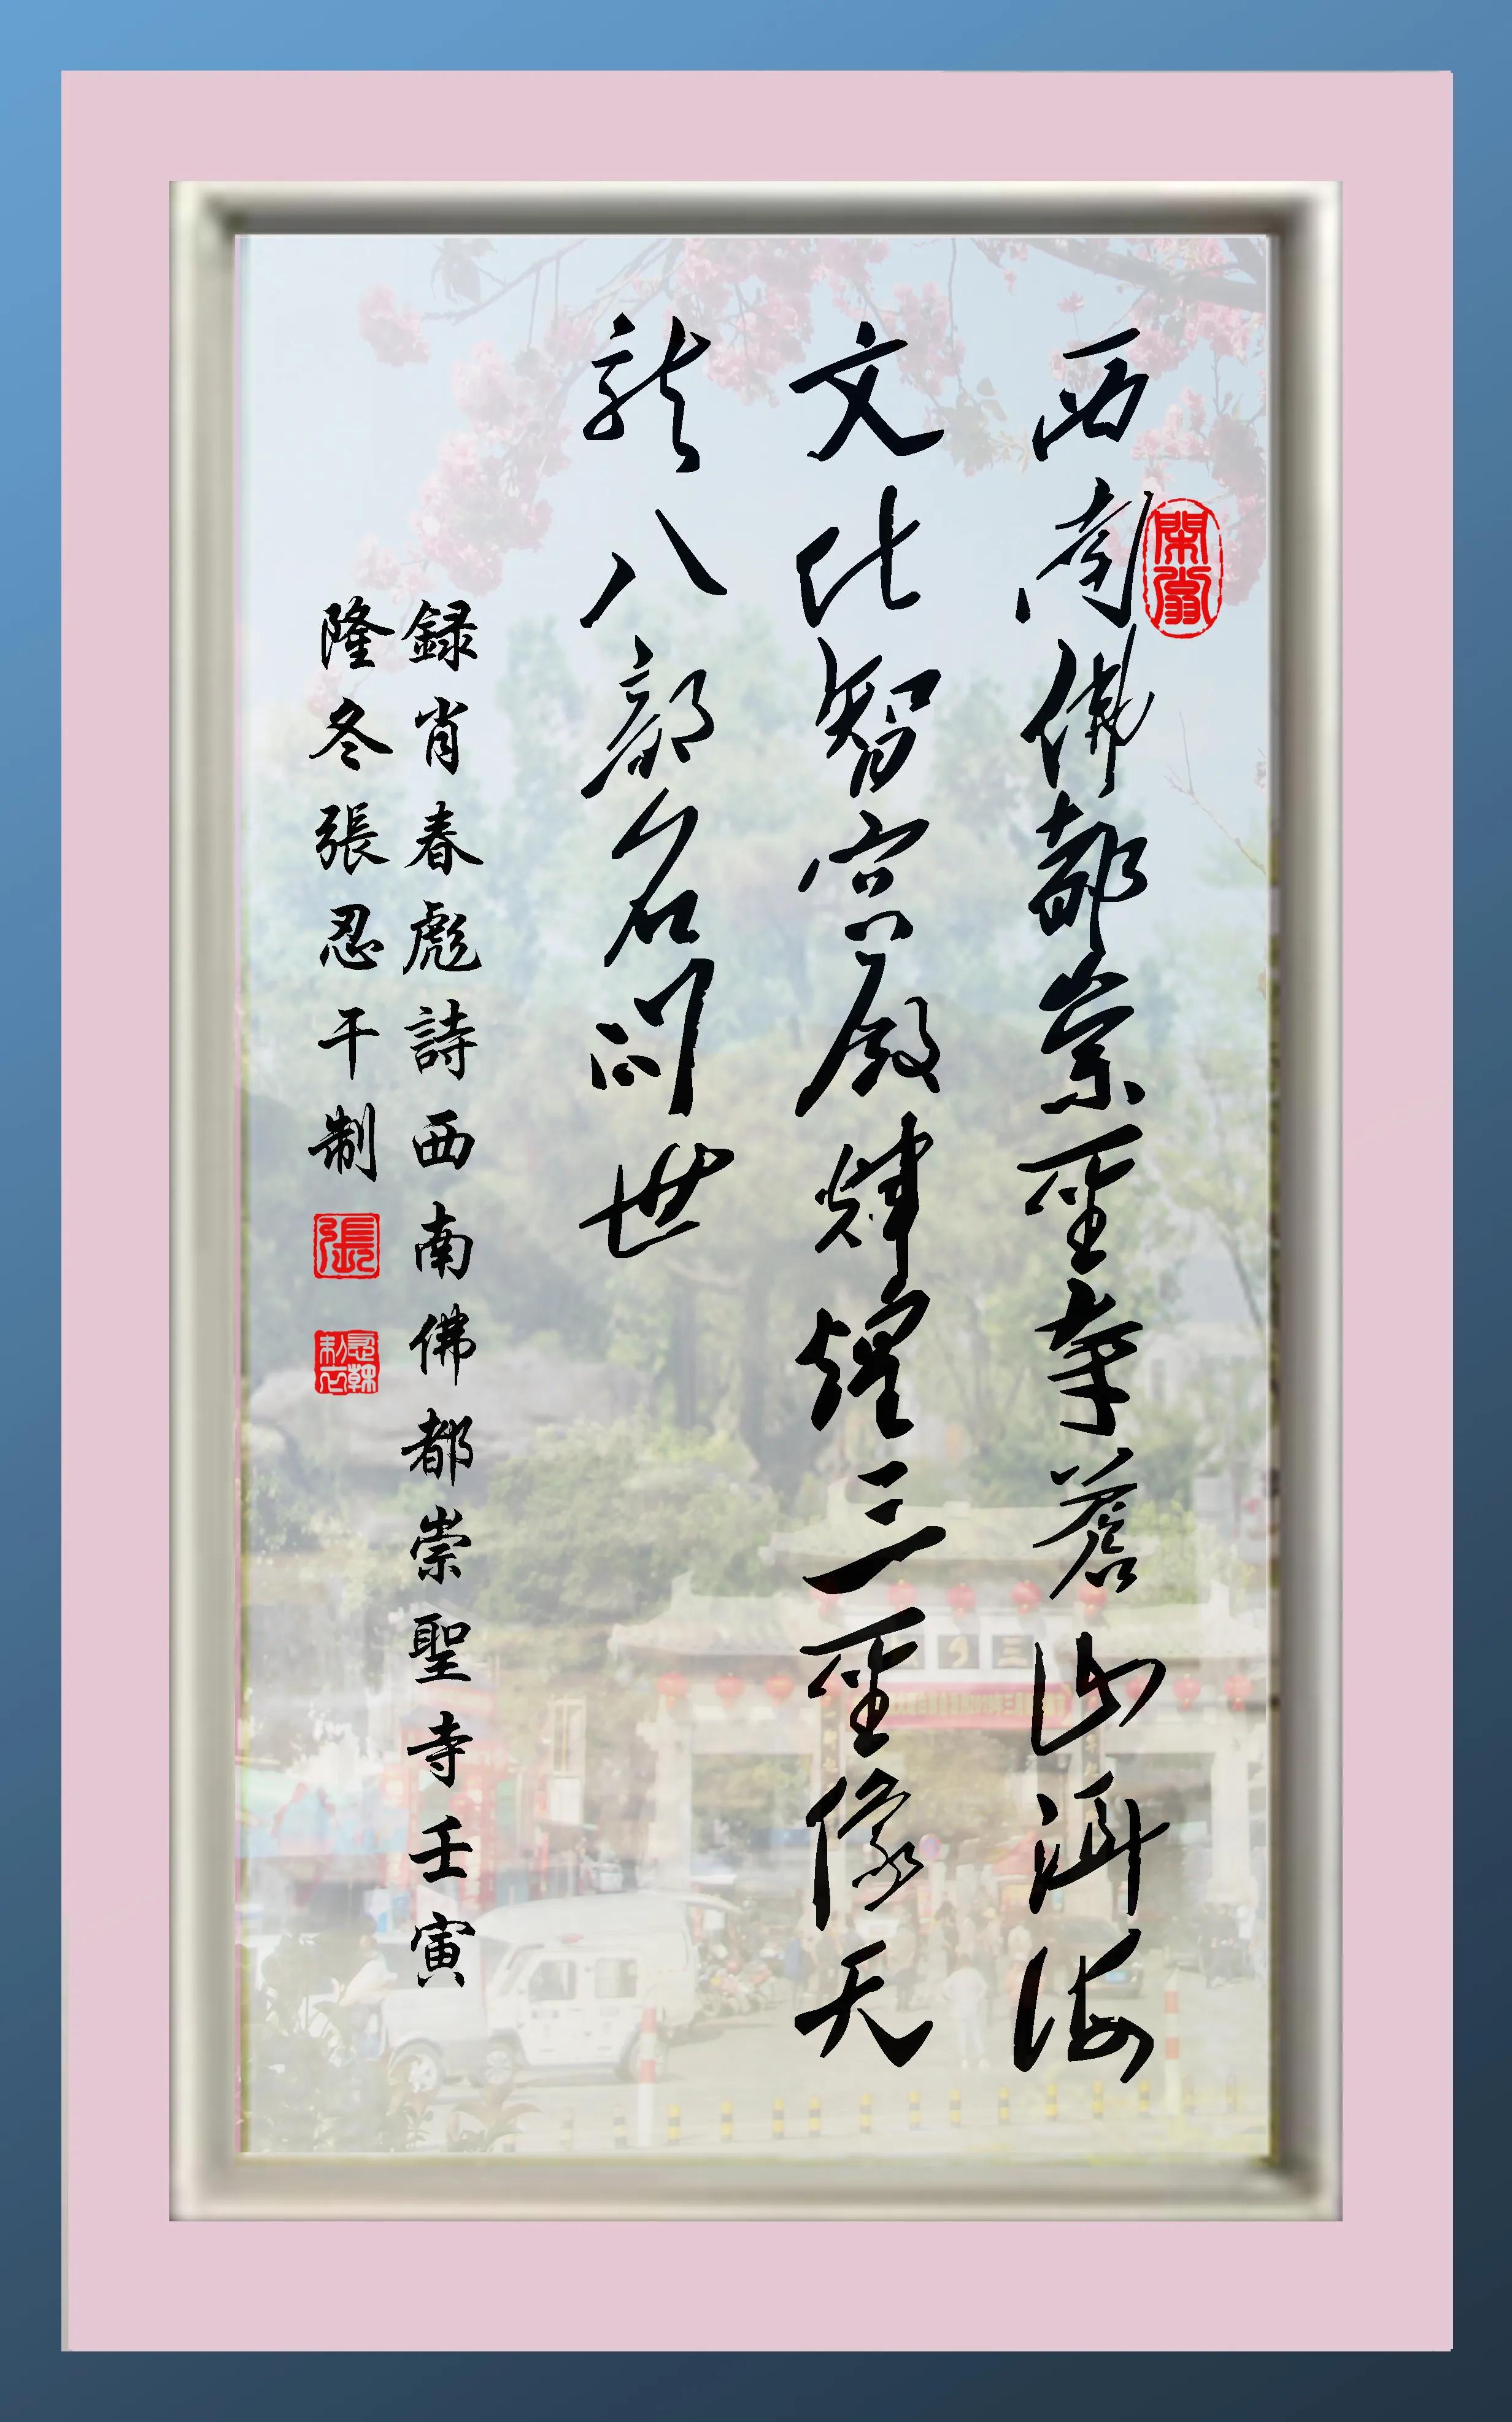 西南佛都崇聖寺蒼山洱海
文化智宫殿輝煌三聖像天
龍八部名問世
録肖春彪詩西南佛都崇聖寺壬寅
隆冬張忍干制
張